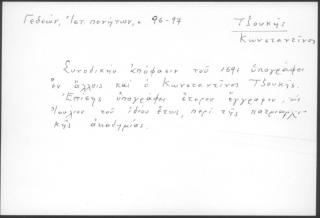 Γεδεών, Πατ. πινήτων, σ 96-97
Τζουκῆς
Κωνσταντῖνος
Συνοδικὴν ἀπόφασιν τοῦ 1691 ὑπογράφει
ἐν ἄλλοις καὶ ὁ Κωνσταντῖνος Τζουκῆς.
Ἐπίσης ὑπογράφει ἕτερον ἔγγραφον,
Ἰουλίου τοῦ ἰδίου ἔτους, περὶ τῆς πατριαρχι-
κῆς ἀκαδημίας.